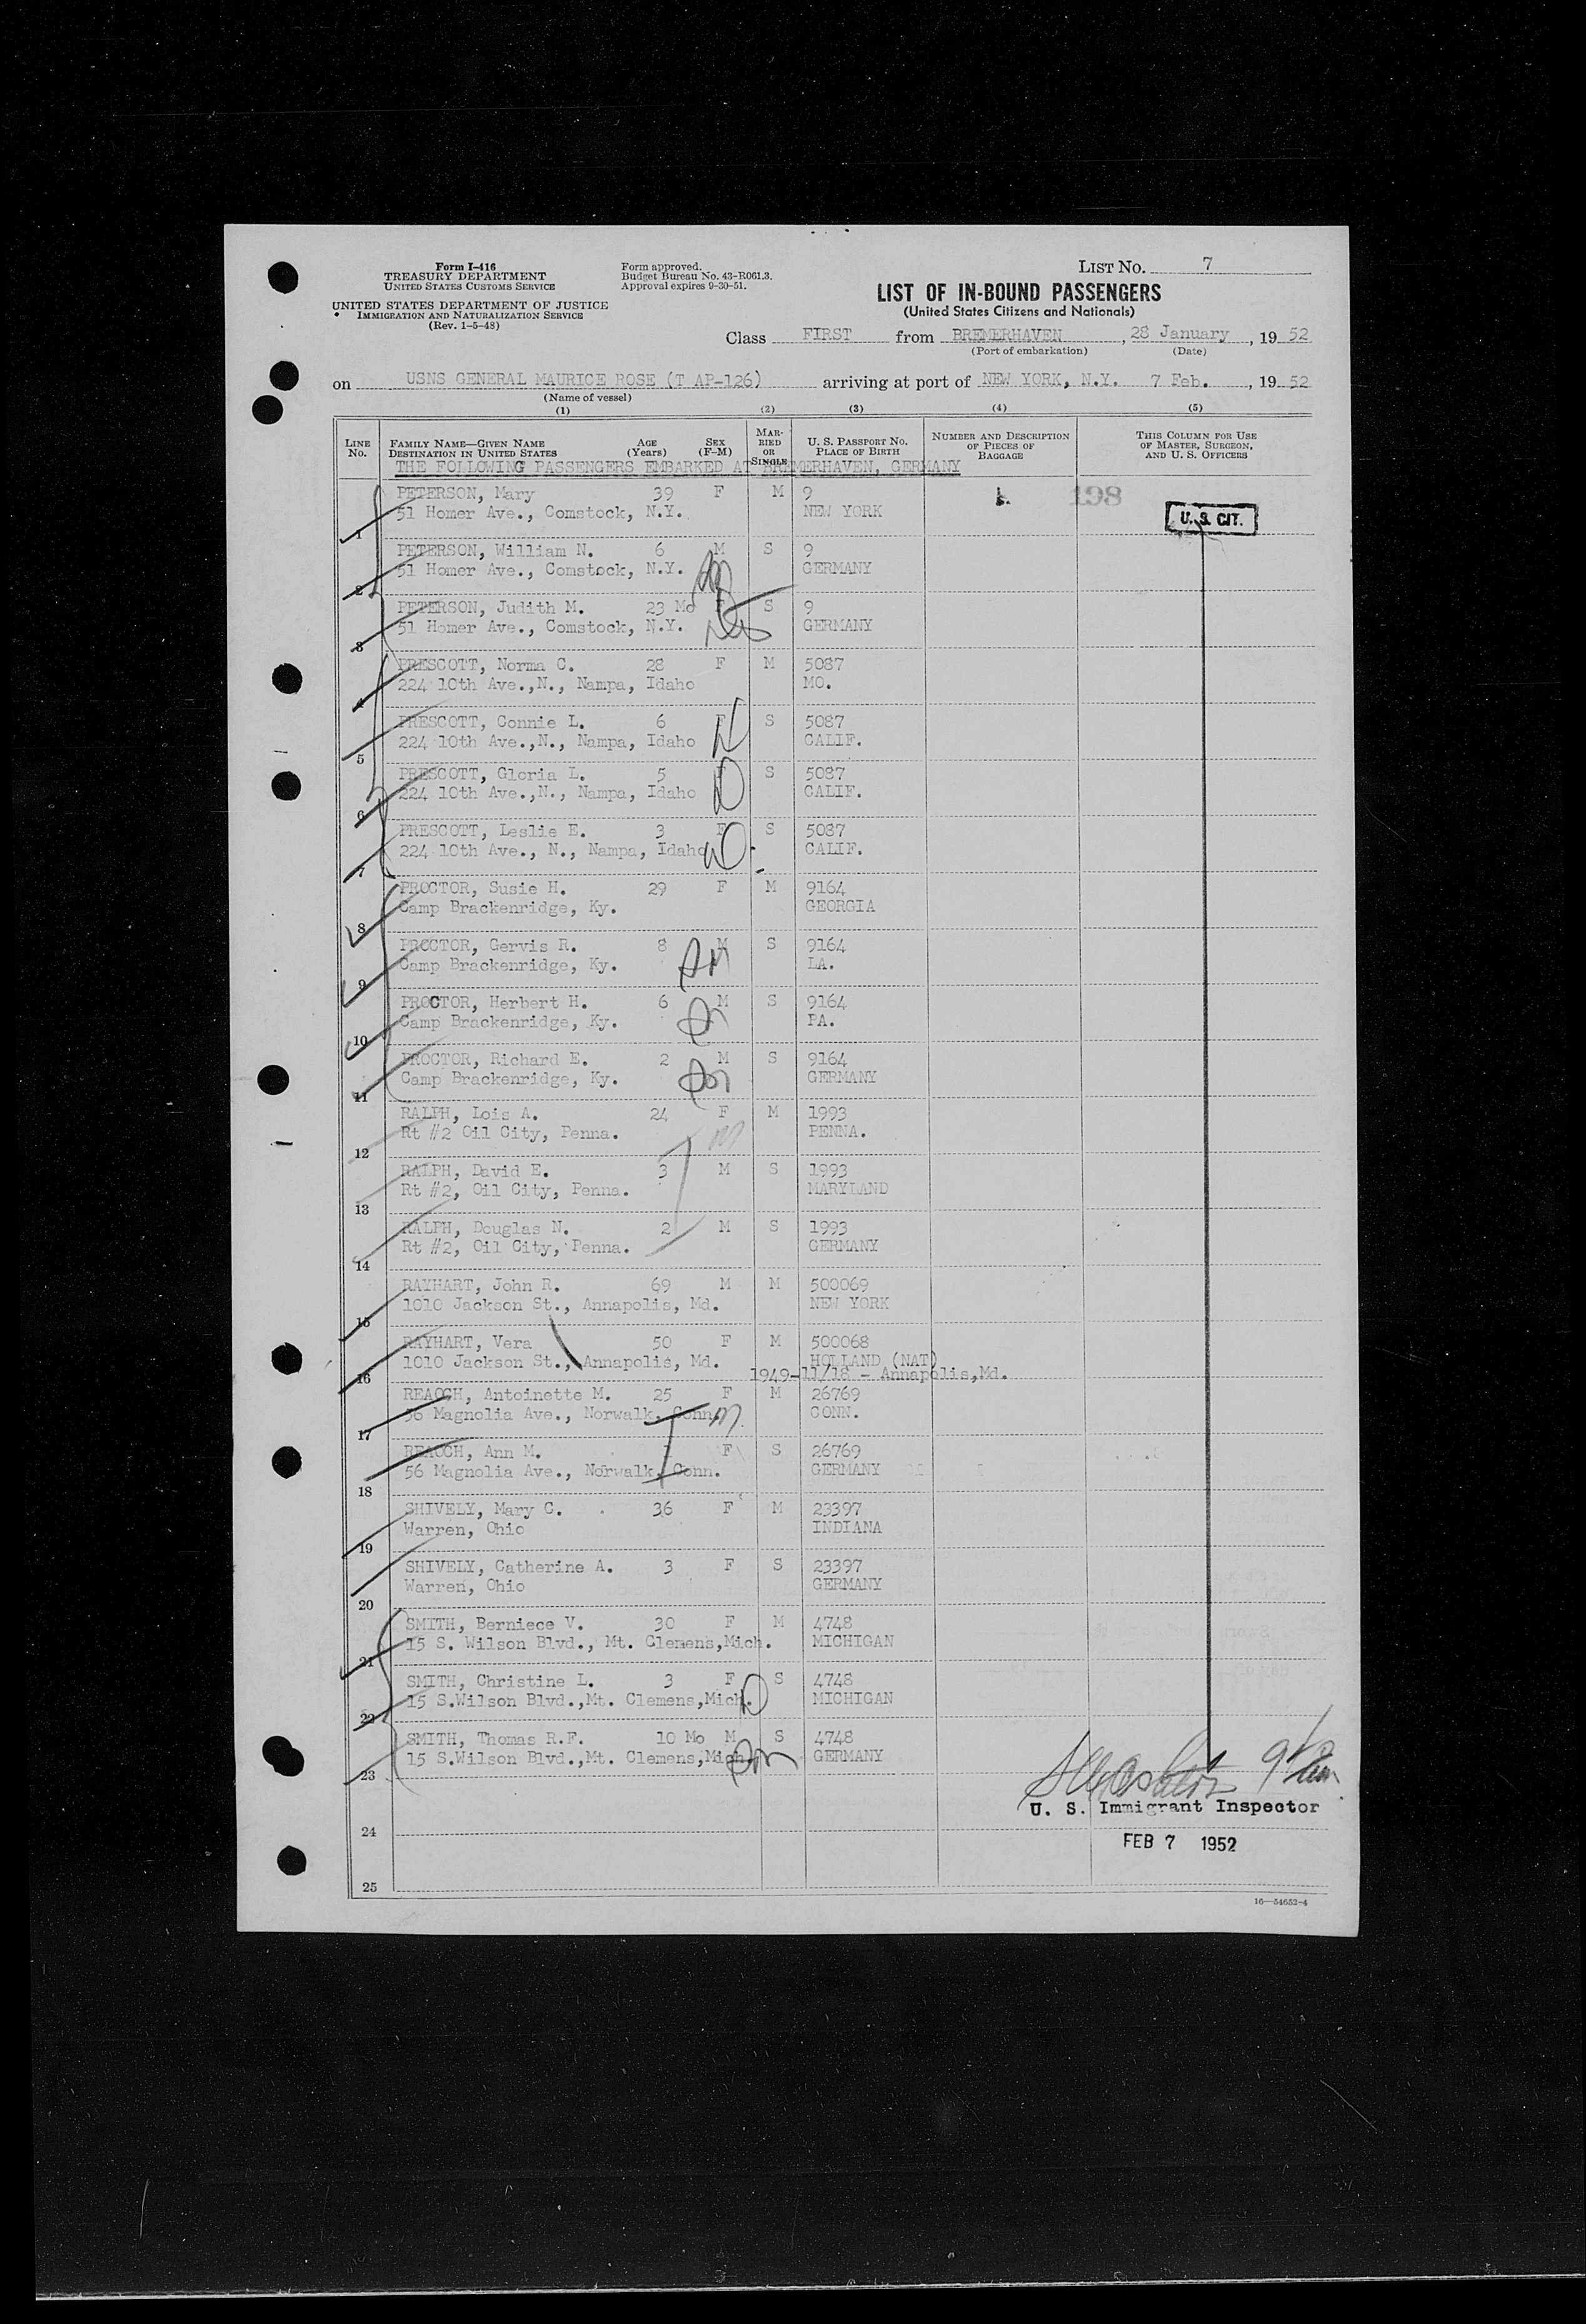 Form I-416
TREASURY DEPARTMENT
UNITED STATES CUSTOMS SERVICE
UNITED STATES DEPARTMENT OF JUSTICE
IMMIGRATION AND NATURALIZATION SERVICE
(Rev. 1-5-48)
Form approved.
Budget Bureau No. 43-R061.3.
Approval expires 9-30-51.
LIST No. 7
LIST OF IN-BOUND PASSENGERS
(United States Citizens and Nationals)
Class FIRST from BREMERHAVEN, 28 January, 19 52
(Port of embarkation) (Date)
on USNS GENERAL MAURICE ROSE (T AP-126) arriving at port of NEW YORK, N.Y. 7 Feb., 19 52
(Name of vessel)
(1) (2) (3) (4) (5)
LINE No. FAMILY NAME—GIVEN NAME DESTINATION IN UNITED STATES AGE (Years) SEX (F-M) MARRIED OR SINGLE U. S. PASSPORT NO. PLACE OF BIRTH NUMBER AND DESCRIPTION OF PIECES OF BAGGAGE THIS COLUMN FOR USE OF MASTER, SURGEON, AND U. S. OFFICERS
THE FOLLOWING PASSENGERS EMBARKED AT BREMERHAVEN, GERMANY
PETERSON, Mary 39 F M 9 198
51 Homer Ave., Comstock, N.Y. NEW YORK U. S. CIT.
1
PETERSON, William N. 6 M S 9
51 Homer Ave., Comstock, N.Y. GERMANY
2
PETERSON, Judith M. 23 Mo F S 9
51 Homer Ave., Comstock, N.Y. GERMANY
3
PRESCOTT, Norma C. 28 F M 5087
224 10th Ave.,N., Nampa, Idaho MO.
4
PRESCOTT, Connie L. 6 F S 5087
224 10th Ave.,N., Nampa, Idaho CALIF.
5
PRESCOTT, Gloria L. 5 F S 5087
224 10th Ave.,N., Nampa, Idaho CALIF.
6
PRESCOTT, Leslie E. 3 F S 5087
224 10th Ave., N., Nampa, Idaho CALIF.
7
PROCTOR, Susie H. 29 F M 9164
Camp Brackenridge, Ky. GEORGIA
8
PROCTOR, Gervis R. 8 M S 9164
Camp Brackenridge, Ky. LA.
9
PROCTOR, Herbert H. 6 M S 9164
Camp Brackenridge, Ky. PA.
10
PROCTOR, Richard E. 2 M S 9164
Camp Brackenridge, Ky. GERMANY
11
RALPH, Lois A. 24 F M 1993
Rt #2 Oil City, Penna. PENNA.
12
RALPH, David E. 3 M S 1993
Rt #2, Oil City, Penna. MARYLAND
13
RALPH, Douglas N. 2 M S 1993
Rt #2, Oil City, Penna. GERMANY
14
RAYHART, John R. 69 M M 500069
1010 Jackson St., Annapolis, Md. NEW YORK
15
RAYHART, Vera 50 F M 500068
1010 Jackson St., Annapolis, Md. HOLLAND (NAT)
16 1949-11/18 - Annapolis,Md.
REAOCH, Antoinette M. 25 F M 26769
56 Magnolia Ave., Norwalk, Conn. CONN.
17
REAOCH, Ann M. F S 26769
56 Magnolia Ave., Norwalk, Conn. GERMANY
18
SHIVELY, Mary C. 36 F M 23397
Warren, Ohio INDIANA
19
SHIVELY, Catherine A. 3 F S 23397
Warren, Ohio GERMANY
20
SMITH, Berniece V. 30 F M 4748
15 S. Wilson Blvd., Mt. Clemens,Mich. MICHIGAN
21
SMITH, Christine L. 3 F S 4748
15 S.Wilson Blvd.,Mt. Clemens,Mich. MICHIGAN
22
SMITH, Thomas R.F. 10 Mo M S 4748
15 S.Wilson Blvd.,Mt. Clemens,Mich. GERMANY
23
U. S. Immigrant Inspector
24
FEB 7 1952
25
16—54652-4